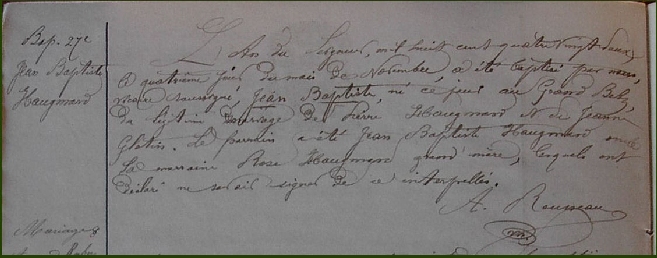 Bap. 27e
Jean Baptiste
Haugmard
L'An du Seigneur, mil huit cent quatre vingt deux,
le quatrième jour du mois de Novembre, a été baptisé par nous,
soussigné, Jean Baptiste, né ce jour au Grand
du légitime mariage de Pierre Haugmard & de Jeanne
Glotin. Le parrain a été Jean Baptiste Haugmard oncle
La marraine Rose Haugmard grand'mère, lesquels ont
déclaré ne savoir signer de ce interpellés.
A. Rousseau
Mariages